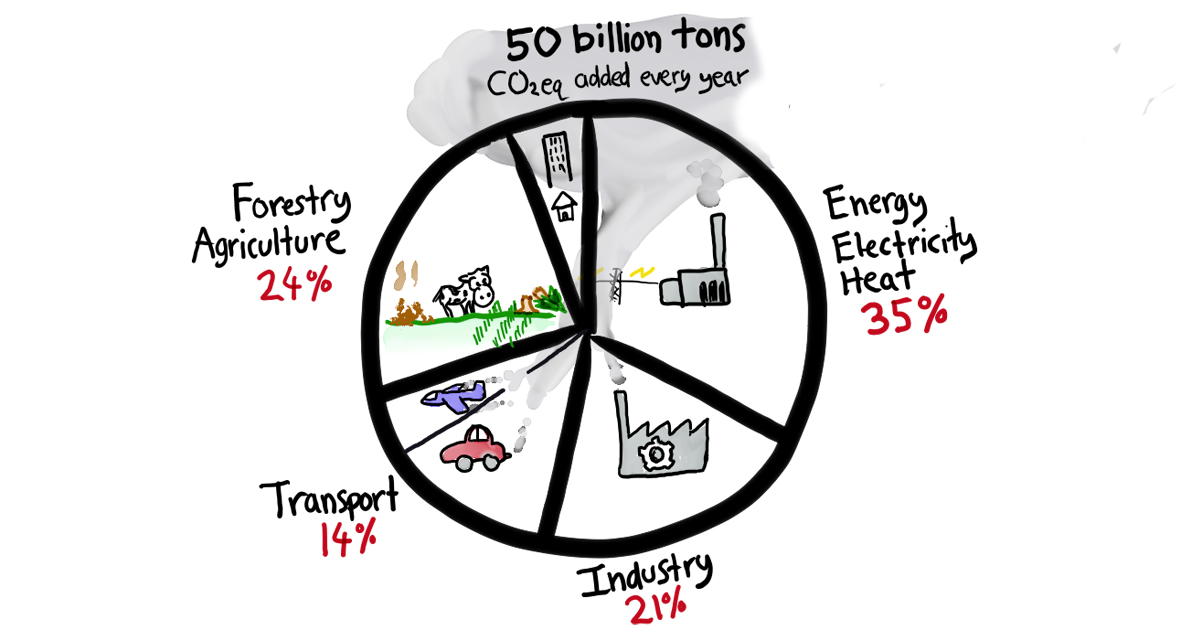 50 billion tons
CO₂eq added every year
Forestry
Agriculture
24%
Energy
Electricity
Heat
35%
Transport
14%
Industry
21%